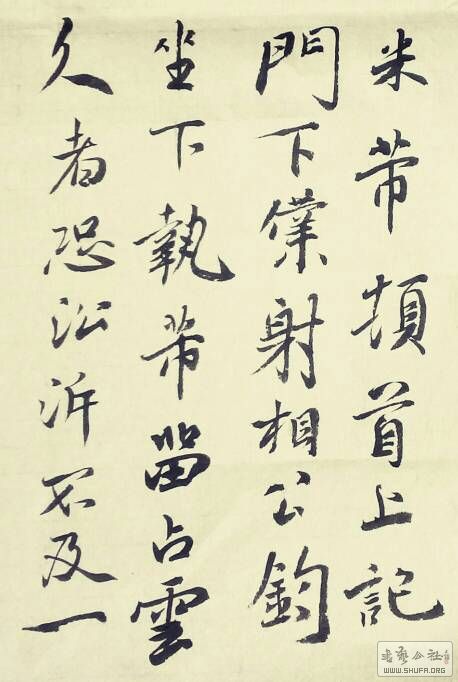 米芾頓首上記
門下僕射相公鈞
坐下執芾留占雲
久者恐沿泝不及一
書藝公社
WWW.SHUFA.ORG